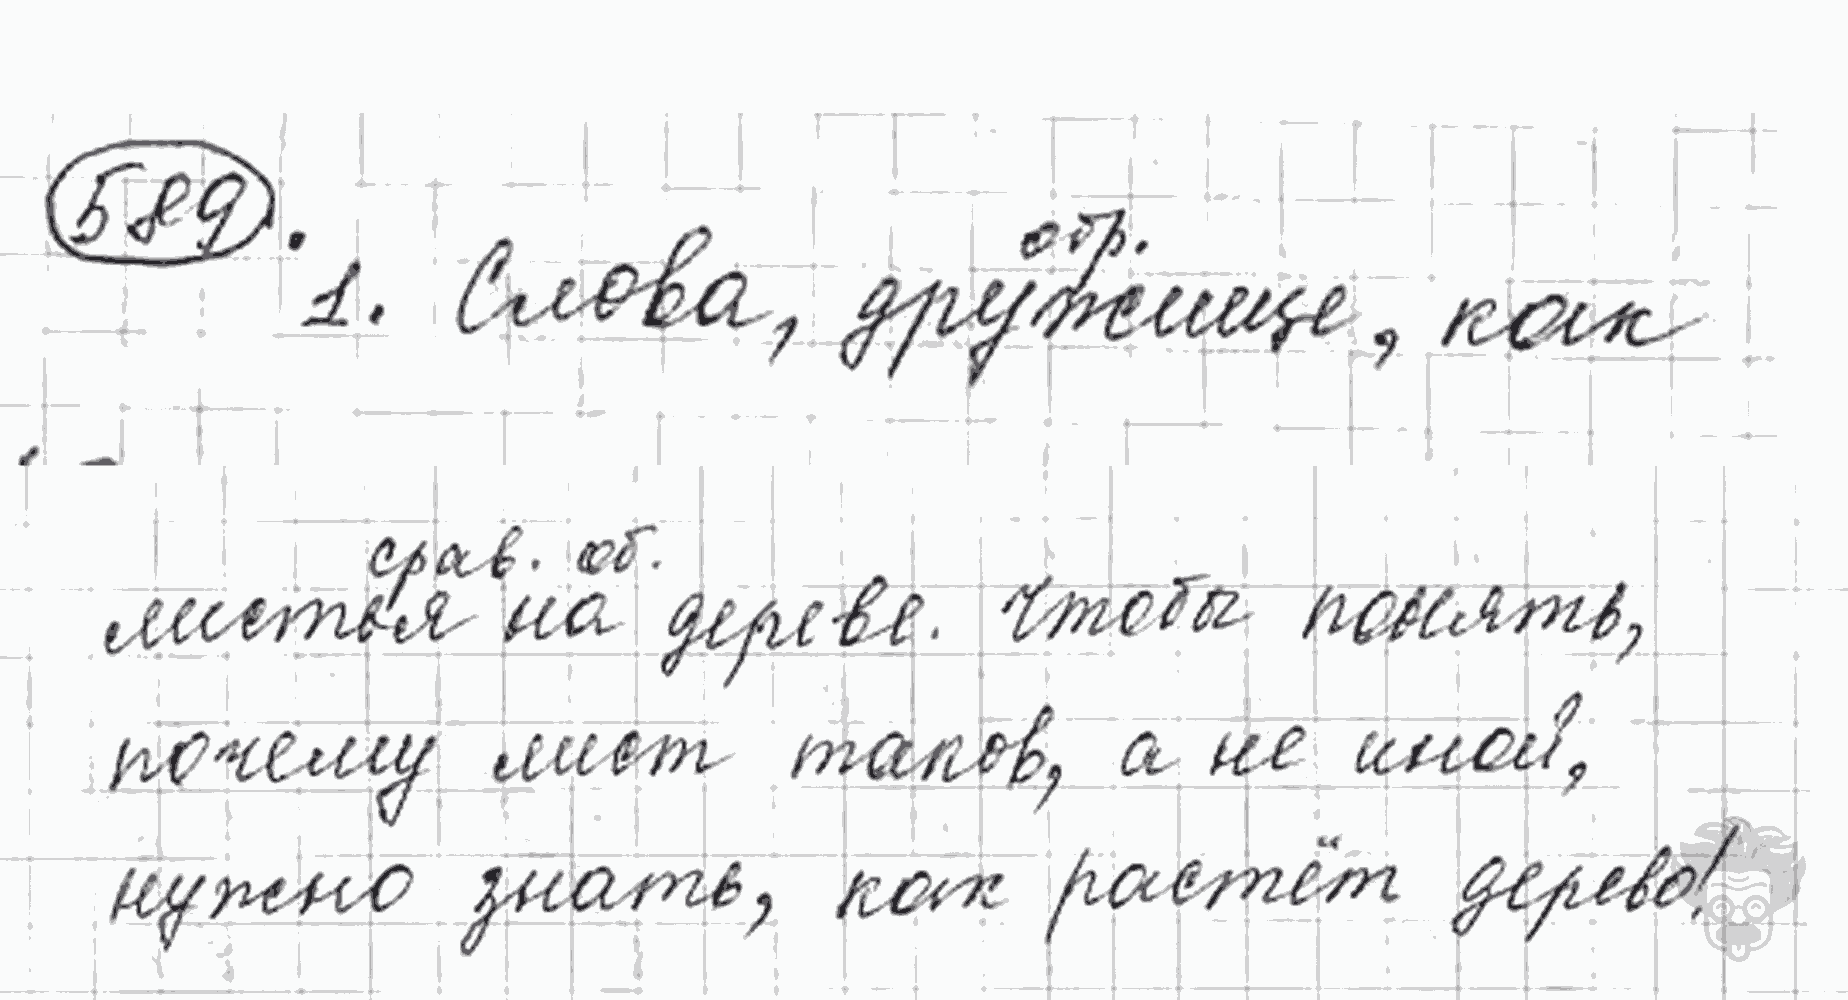 589.
обр.
1. Слова, дружище, как
срав. об.
листья на дереве. Чтобы понять,
почему лист таков, а не иной,
нужно знать, как растёт дерево!